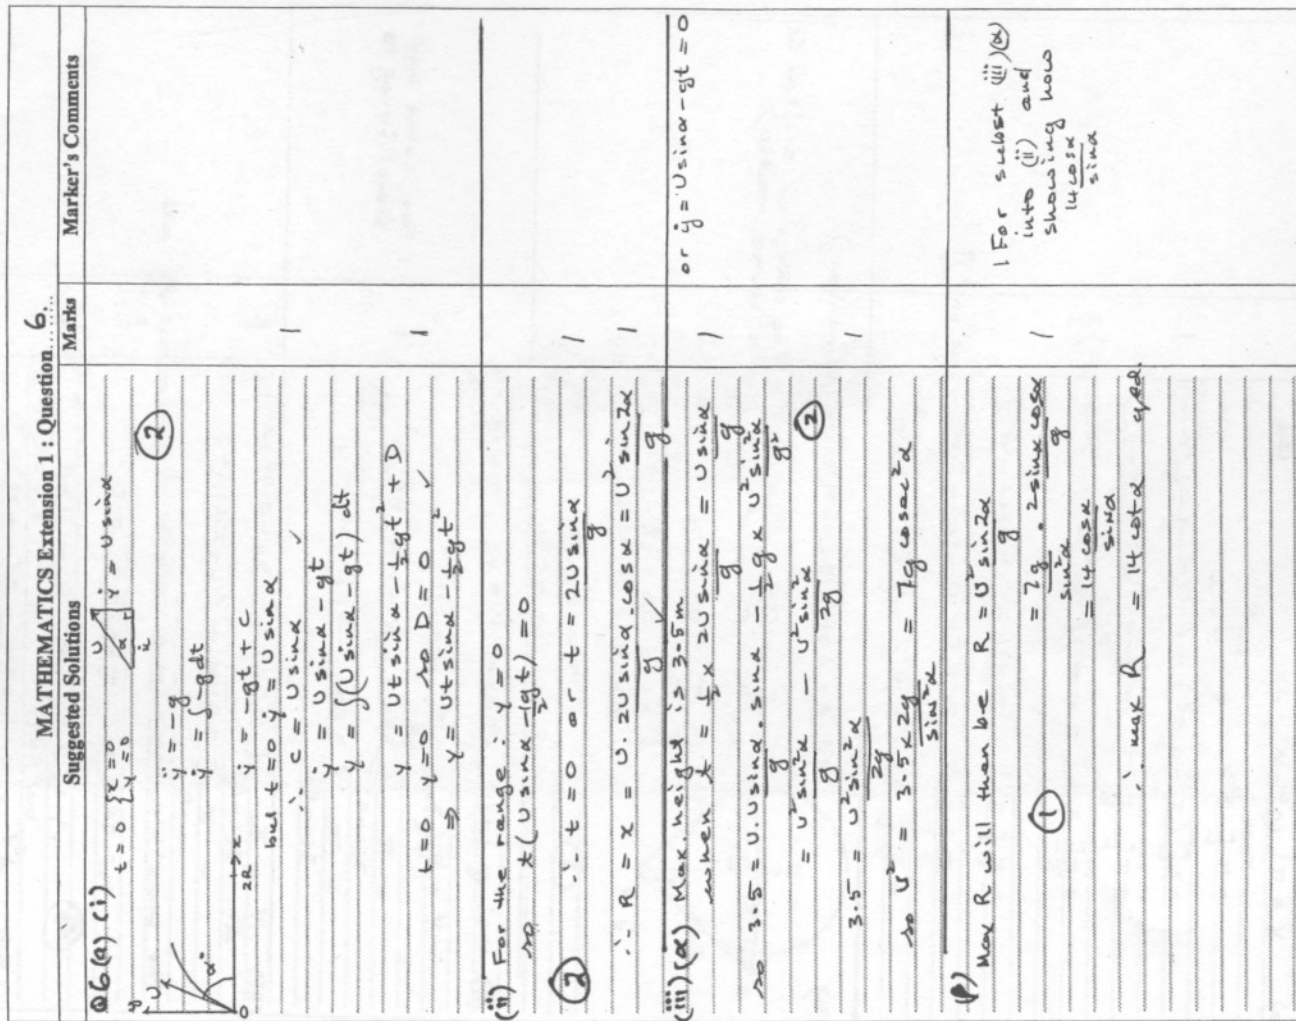 MATHEMATICS Extension 1 : Question 6.
Suggested Solutions
Marks
Marker's Comments
Q6 (a) (i)
t = 0 { x = 0
y = 0
U
α
ẋ
ẏ = U sin α
y
U
α°
0
2R
x
②
ÿ = -g
ẏ = ∫ -g dt
ẏ = -gt + C
but t = 0 ẏ = U sin α
∴ C = U sin α ✓ 1
ẏ = U sin α - gt
y = ∫ (U sin α - gt) dt
y = Ut sin α - ½gt² + D
t = 0 y = 0 so D = 0 ✓ 1
⇒ y = Ut sin α - ½gt²
(ii) For the range : y = 0
so t (U sin α - ½gt) = 0
② ∴ t = 0 or t = 2U sin α / g 1
∴ R = x = U. 2U sin α / g . cos α = U² sin 2α / g 1
(iii) (α) Max. height is 3.5 m
when t = ½ x 2U sin α / g = U sin α / g 1 or ẏ = U sin α - gt = 0
so 3.5 = U. U sin α / g . sin α - ½g x U² sin² α / g²
= U² sin² α / g - U² sin² α / 2g ②
3.5 = U² sin² α / 2g 1
so U² = 3.5 x 2g / sin² α = 7g cosec² α
(β)
Max R will then be R = U² sin 2α / g
① = 7g / sin² α . 2 sin α cos α / g 1
= 14 cos α / sin α
∴ max R = 14 cot α qed.
1 For subst (iii)(α)
into (ii) and
showing how
14 cos α
sin α